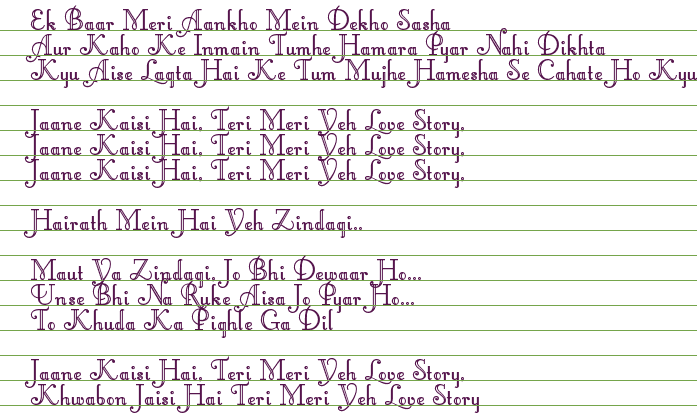 Ek Baar Meri Aankho Mein Dekho Sasha
Aur Kaho Ke Inmain Tumhe Hamara Pyar Nahi Dikhta
Kyu Aise Lagta Hai Ke Tum Mujhe Hamesha Se Cahate Ho Kyu
Jaane Kaisi Hai. Teri Meri Yeh Love Story.
Jaane Kaisi Hai. Teri Meri Yeh Love Story.
Jaane Kaisi Hai. Teri Meri Yeh Love Story.
Hairath Mein Hai Yeh Zindagi..
Maut Ya Zindagi. Jo Bhi Dewaar Ho...
Unse Bhi Na Ruke Aisa Jo Pyar Ho...
To Khuda Ka Pighle Ga Dil
Jaane Kaisi Hai. Teri Meri Yeh Love Story.
Khwabon Jaisi Hai Teri Meri Yeh Love Story